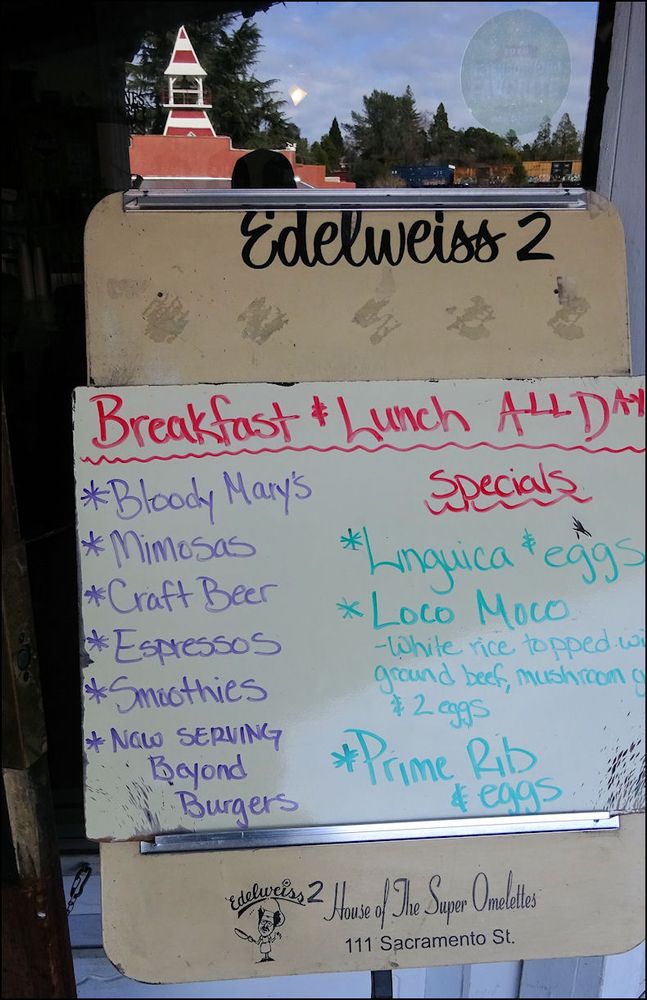 Edelweiss 2
Breakfast & Lunch ALL DAY
*Bloody Mary's
*Mimosas
*Craft Beer
*Espressos
*Smoothies
*NOW SERVING
Beyond
Burgers
Specials
*Linguica & eggs
*Loco Moco
-White rice topped
ground beef, mushroom
& 2 eggs
*Prime Rib
& eggs
Edelweiss 2 House of The Super Omelettes
111 Sacramento St.